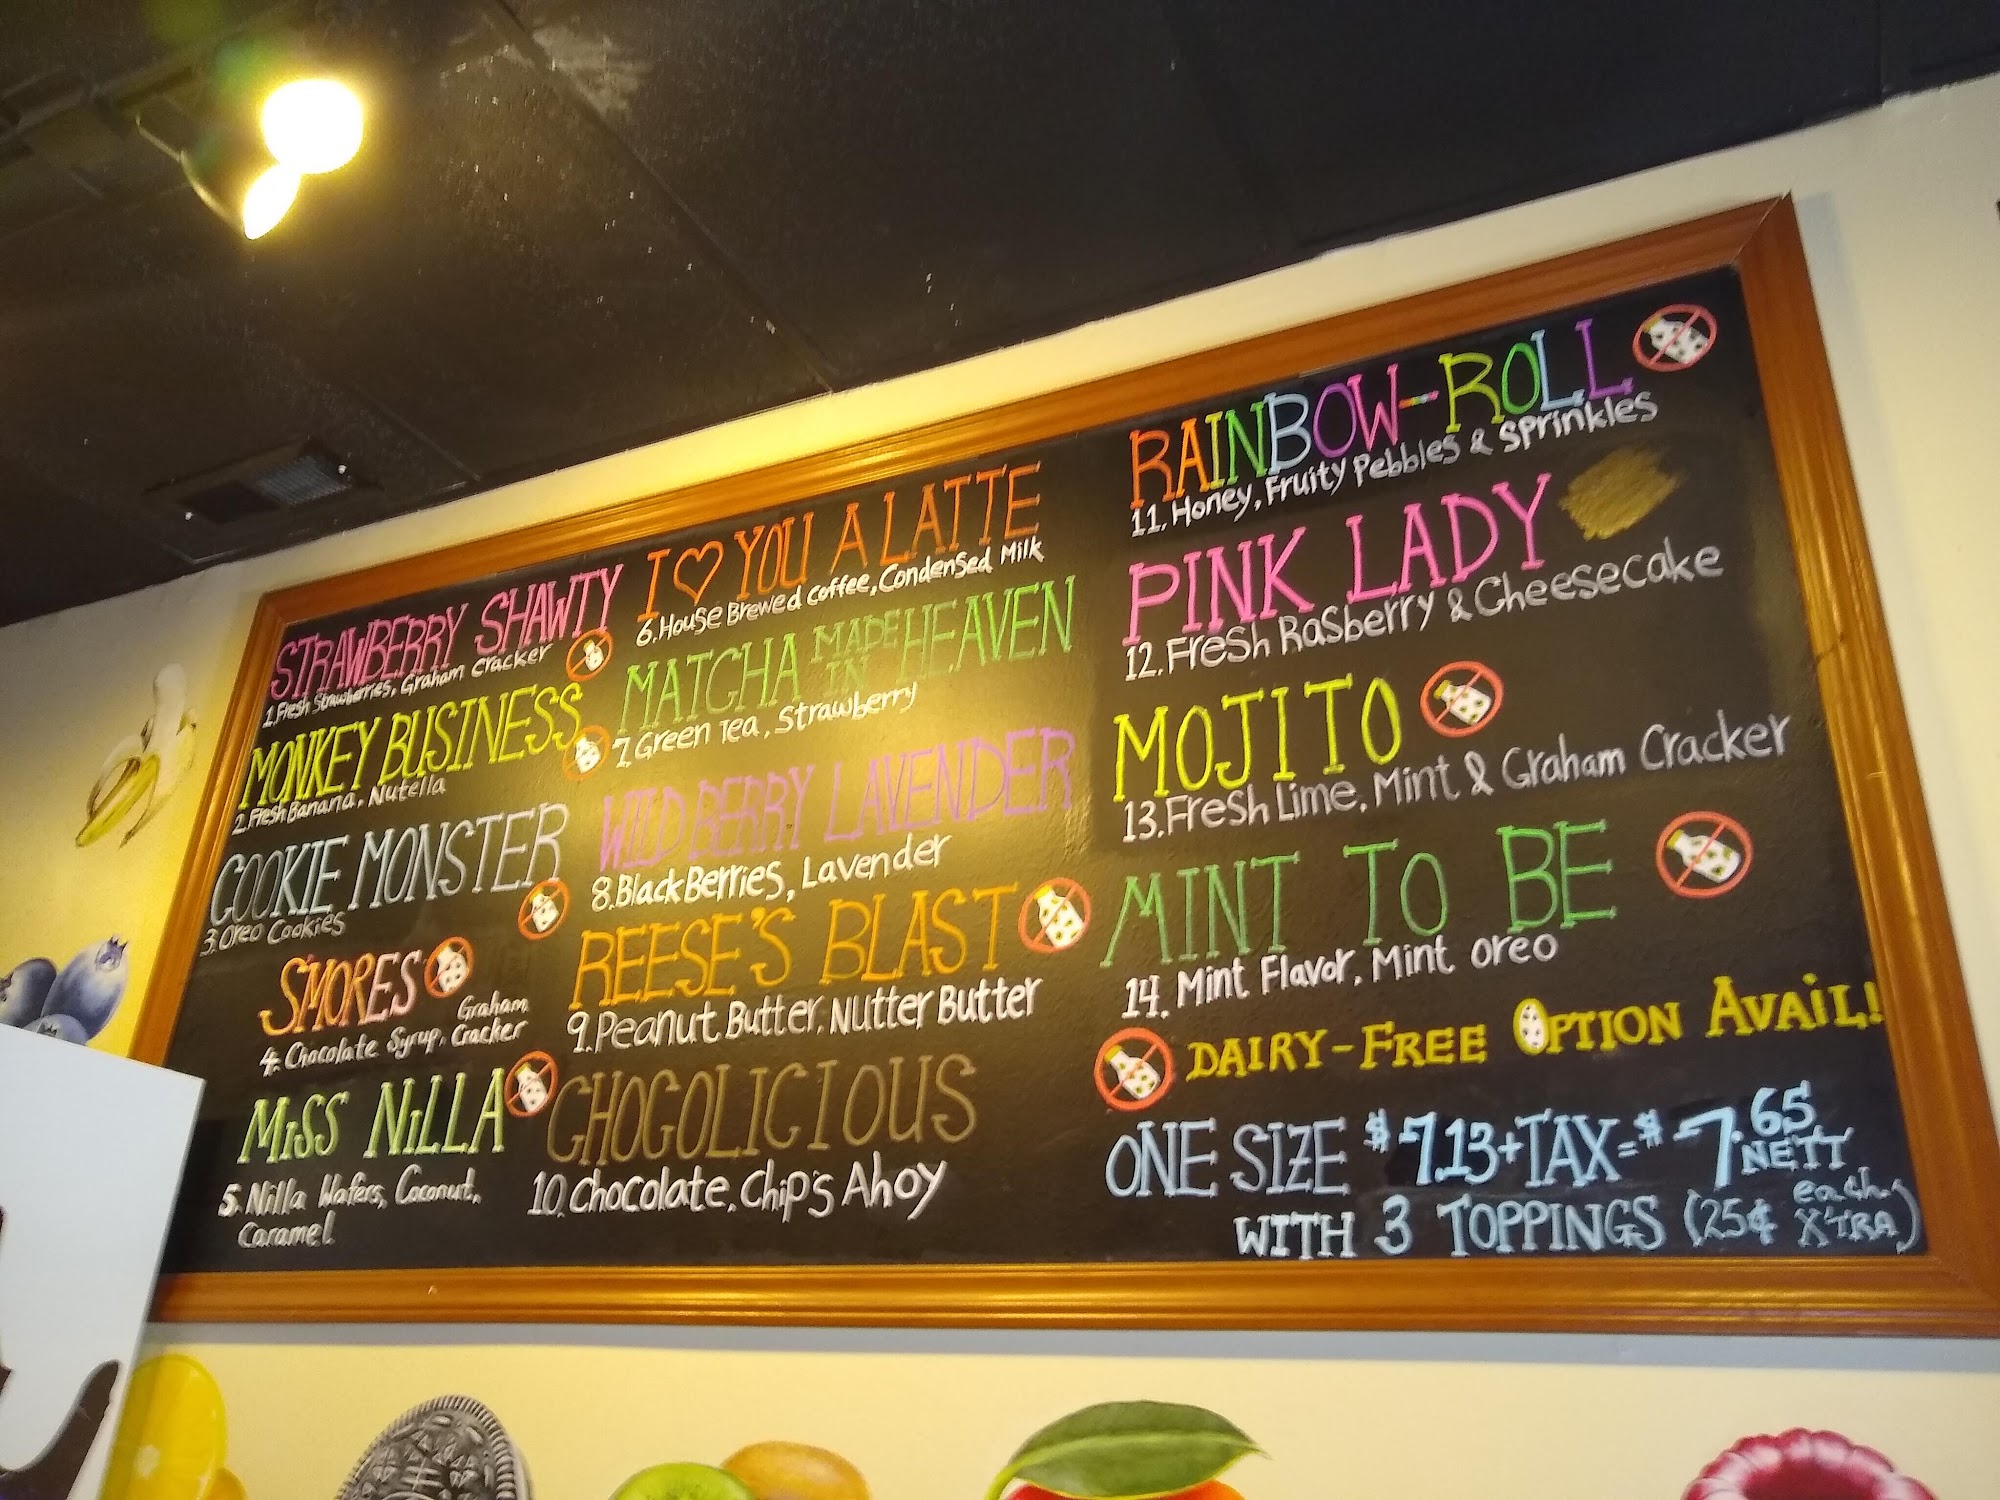 STRAWBERRY SHAWTY
1. Fresh Strawberries, Graham Cracker
MONKEY BUSINESS
2. Fresh Banana, Nutella
COOKIE MONSTER
3. Oreo Cookies
S'MORES
Graham
4. Chocolate Syrup, Cracker
MISS NILLA
5. Nilla Wafers, Coconut,
Caramel
I ♡ YOU A LATTE
6. House Brewed Coffee, Condensed Milk
MATCHA MADE IN HEAVEN
7. Green Tea, Strawberry
WILD BERRY LAVENDER
8. BlackBerries, Lavender
REESE'S BLAST
9. Peanut Butter, Nutter Butter
CHOCOLICIOUS
10. Chocolate, Chip's Ahoy
RAINBOW-ROLL
11. Honey, Fruity Pebbles & Sprinkles
PINK LADY
12. Fresh Rasberry & Cheesecake
MOJITO
13. Fresh Lime, Mint & Graham Cracker
MINT TO BE
14. Mint Flavor, Mint Oreo
DAIRY-FREE OPTION AVAIL!
ONE SIZE $7.13+TAX=$7.65 NETT
WITH 3 TOPPINGS (25¢ each X'TRA)